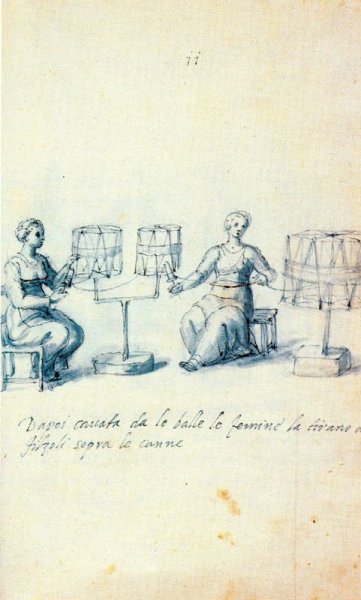 11
Dapoi cauata da le balle le femine la tirano
sopra le canne